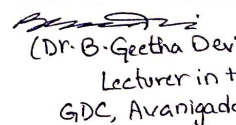 (Dr. B. Geetha Devi
Lecturer in
GDC, Avanigadd